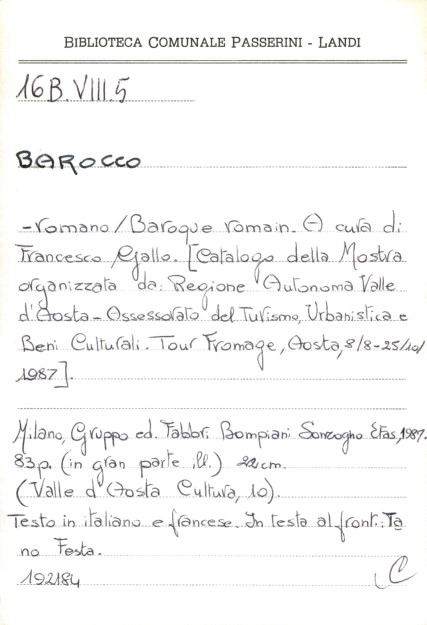 BIBLIOTECA COMUNALE PASSERINI - LANDI
16B.VIII.5
BAROCCO
-romano/Baroque romain. A cura di
Francesco Gallo. [Catalogo della Mostra
organizzata da: Regione Autonoma Valle
d'Aosta - Assessorato del Turismo, Urbanistica e
Beni Culturali. Tour Fromage, Aosta, 8/8-25/10/
1987].
Milano, Gruppo ed. Fabbri Bompiani Sonzogno Etas, 1987.
83p. (in gran parte ill.) 22cm.
(Valle d'Aosta Cultura, 10).
Testo in italiano e francese. In testa al front.: Ta
no Festa.
192184
C